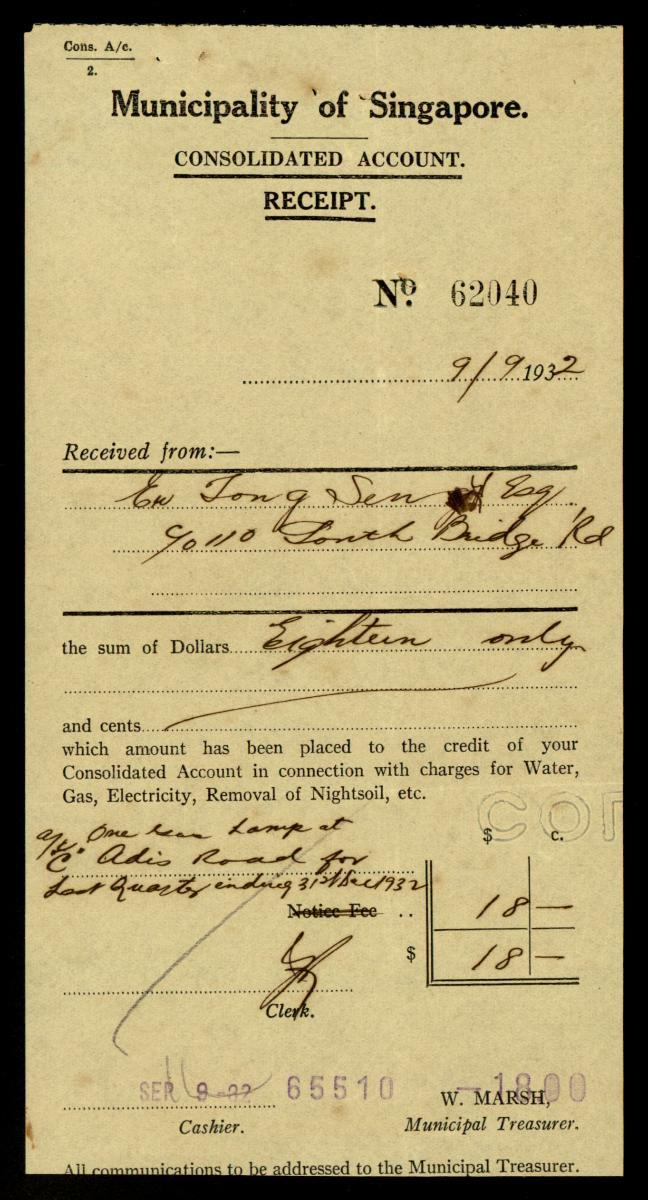 Cons. A/c.
2.
Municipality of Singapore.
CONSOLIDATED ACCOUNT.
RECEIPT.
No. 62040
9/9 1932
Received from:—
Eu Tong Sen Esq.
c/o 110 South Bridge Rd
the sum of Dollars Eighteen only
and cents
which amount has been placed to the credit of your
Consolidated Account in connection with charges for Water,
Gas, Electricity, Removal of Nightsoil, etc.
$ c.
One Gas Lamp at
Adis Road for
Last Quarter ending 31st Dec 1932
Notice Fee .. 18 —
$ 18 —
Clerk.
SEP 9-32 65510 —1800
W. MARSH,
Cashier. Municipal Treasurer.
All communications to be addressed to the Municipal Treasurer.